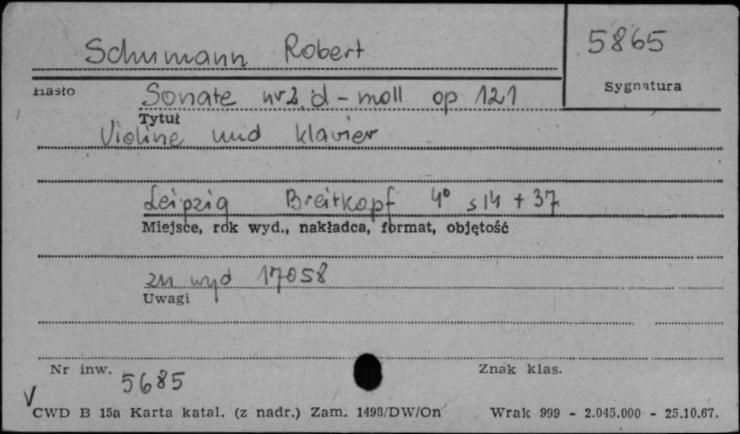 Schumann Robert
5865
Hasło
Sygnatura
Sonate nr 2. d-moll op 121
Tytuł
Violine und Klavier
Leipzig Breitkopf 4° s 14 + 37
Miejsce, rok wyd., nakładca, format, objętość
zn wyd 17058
Uwagi
Nr inw. 5685
Znak klas.
V
CWD B 15a Karta katal. (z nadr.) Zam. 1498/DW/On Wrak 999 - 2.045.000 - 25.10.67.